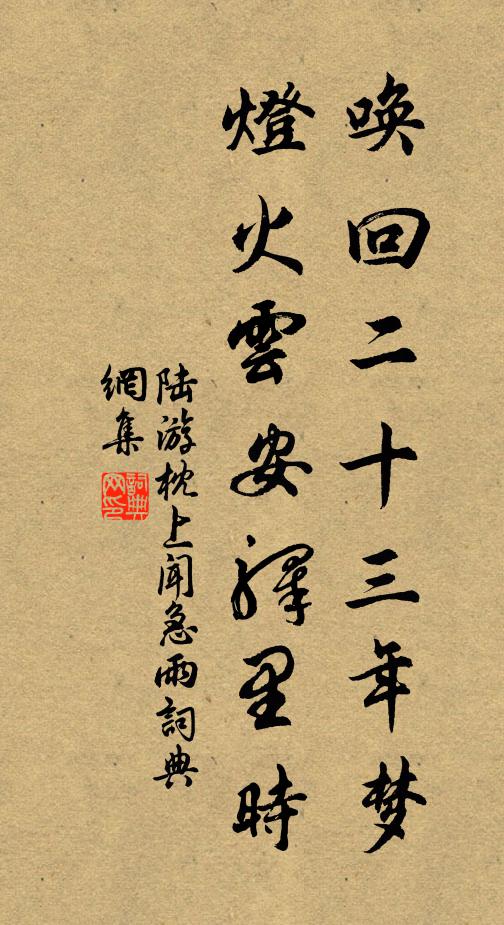 唤回二十三年梦
燈火雲安驛里時
陆游枕上闻急雨詞典
網集
詞典網印